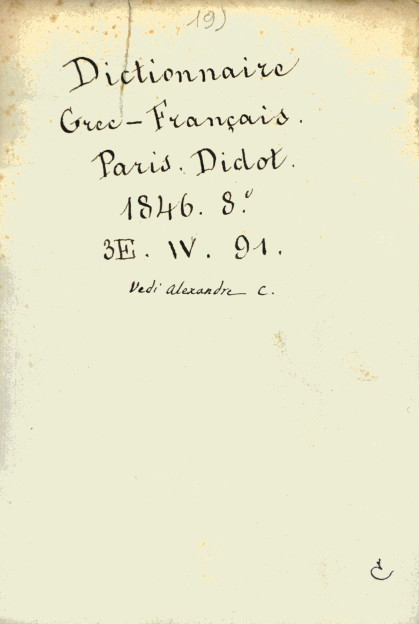 19)
Dictionnaire
Grec-Français.
Paris. Didot.
1846. 8.º
3E. IV. 91.
Vedi Alexandre C.